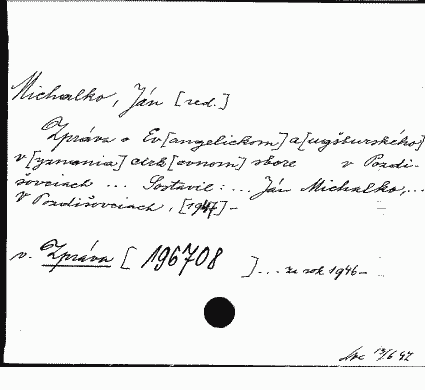 Michalko, Ján [red.]
Zpráva o Ev[angelickom] a[ugšburského]
v[yznania] cirk[evnom] sbore v Pozdi-
šovciach ... Sostavil: ... Ján Michalko, ...
V Pozdišovciach, [1947] -
v. Zpráva [ 196708 ] ... za rok 1946 -